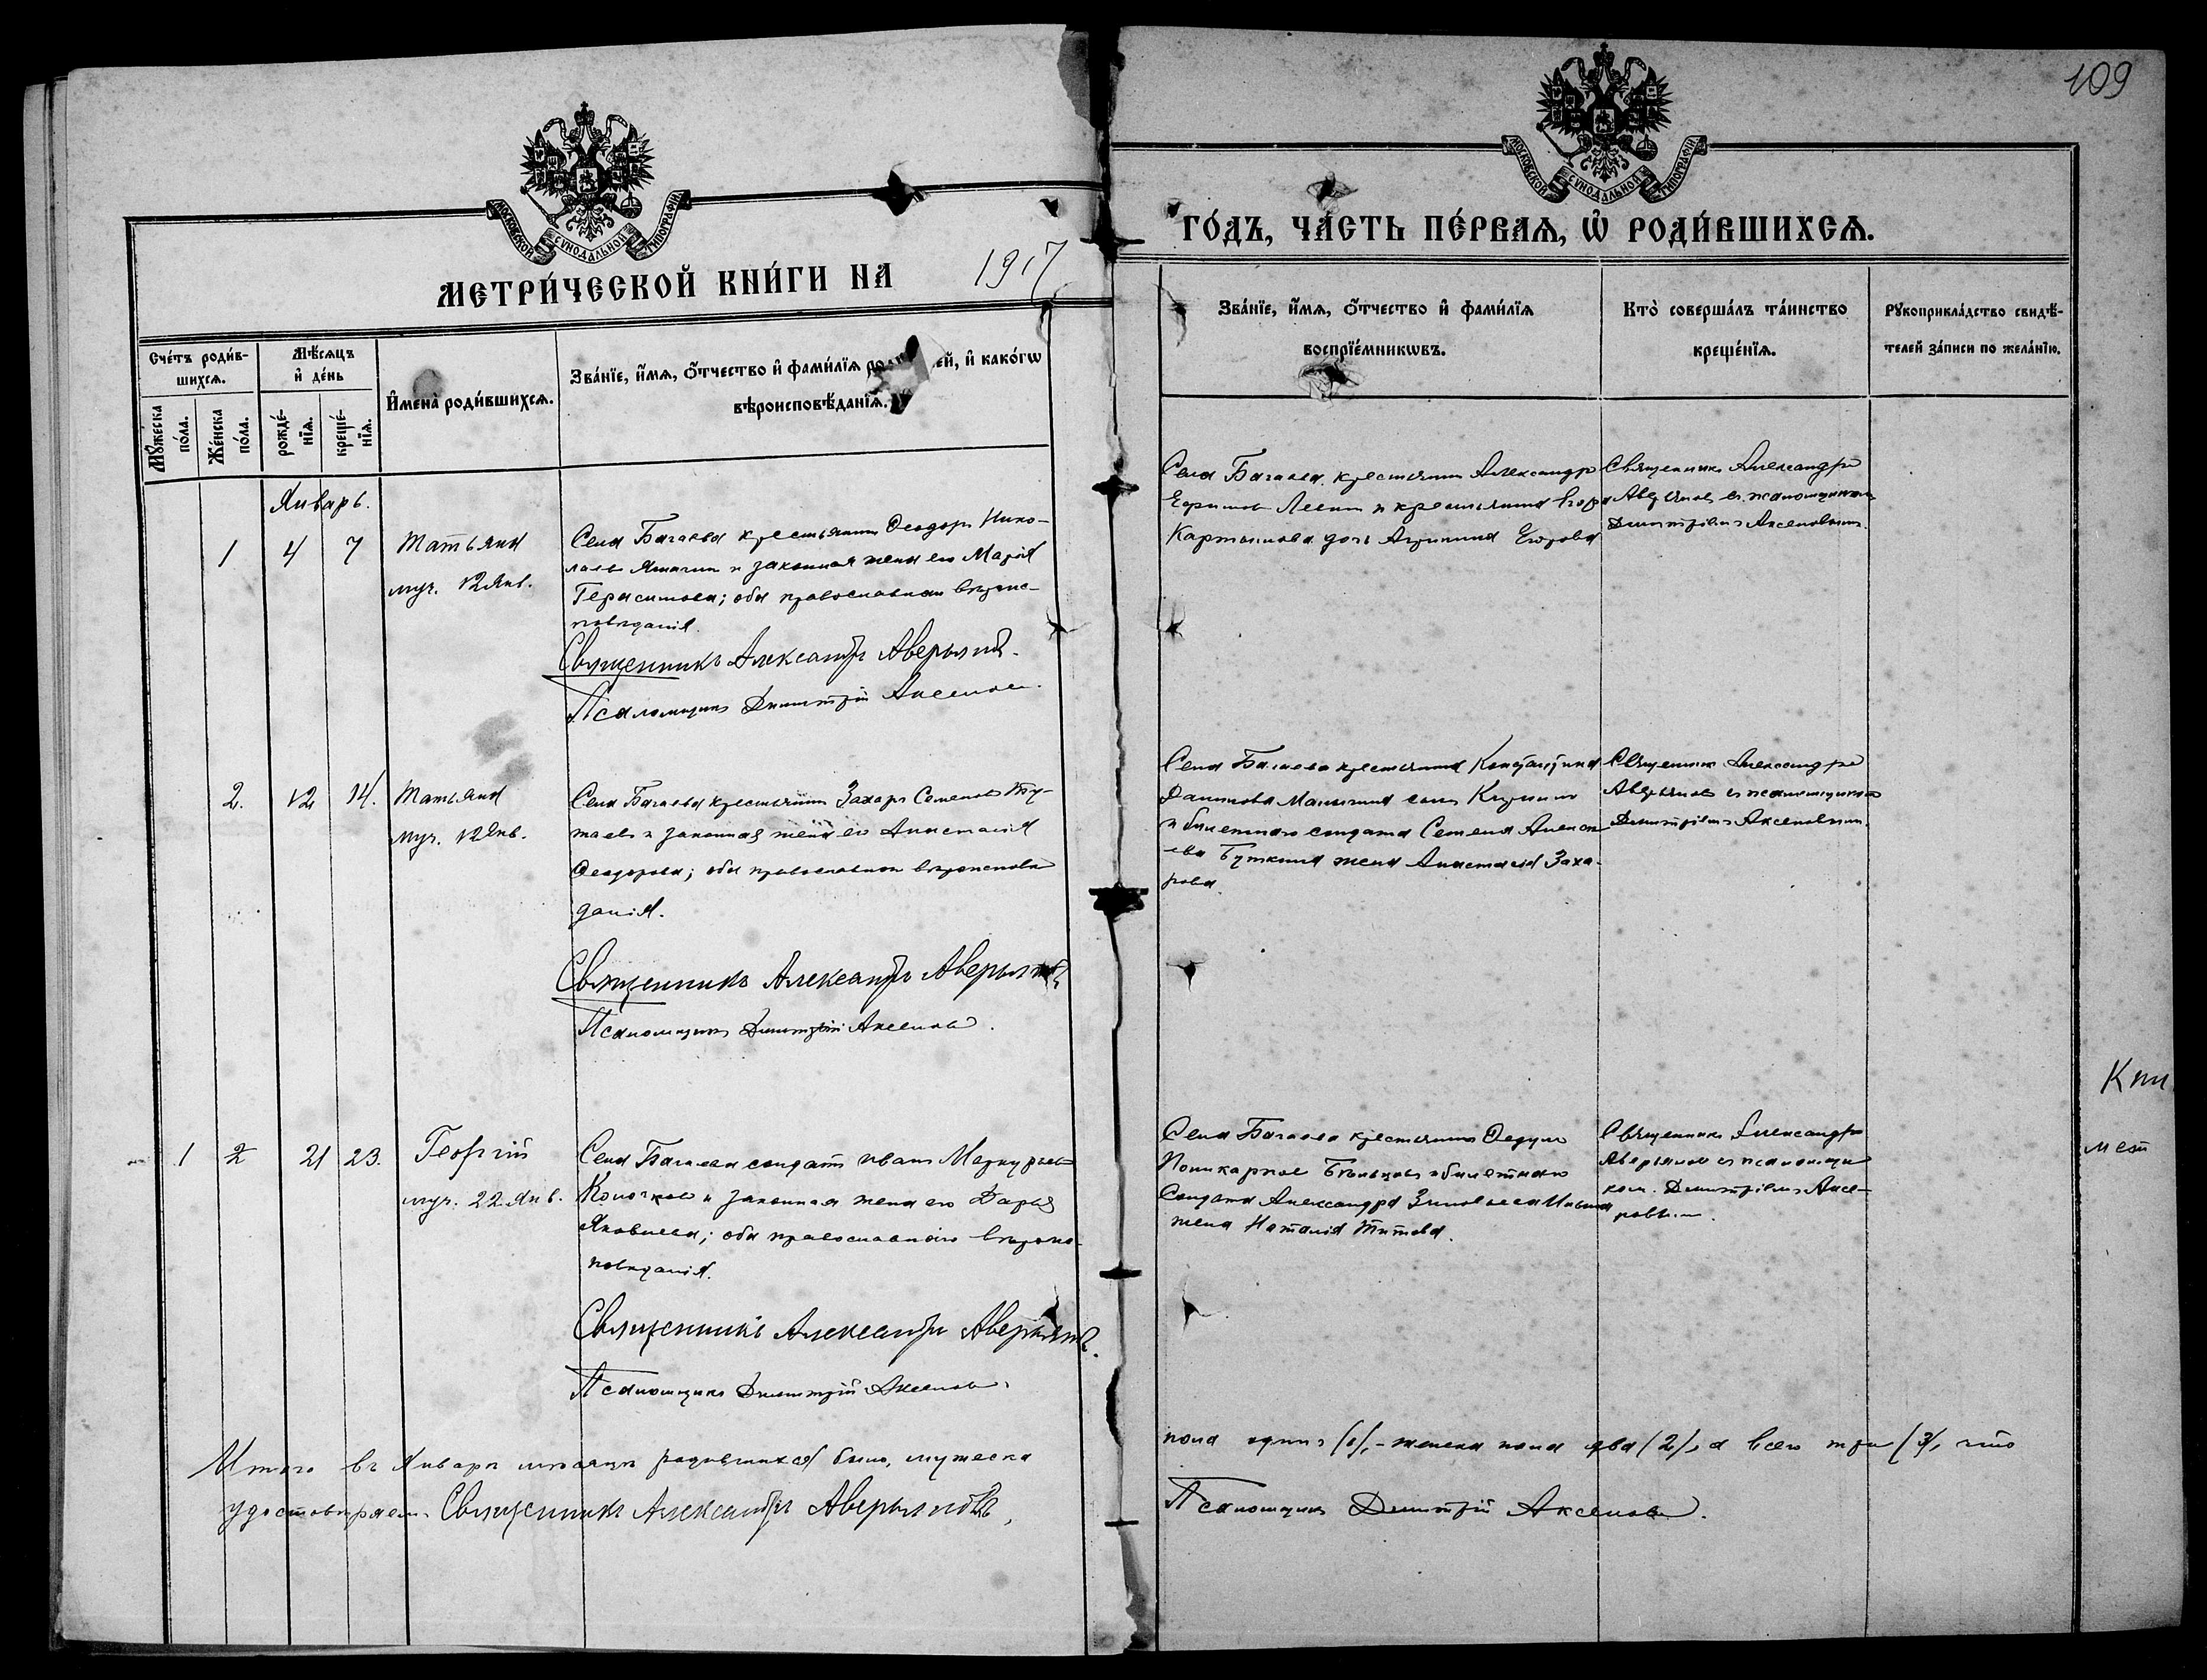 109
МОСКОВСКОЙ СѴНОДАЛЬНОЙ ТИПОГРАФІИ
МОСКОВСКОЙ СѴНОДАЛЬНОЙ ТИПОГРАФІИ
МЕТРИ́ЧЕСКОЙ КНИ́ГИ НА 1917
ГО́ДЪ, ЧА́СТЬ ПЕ́РВАѦ, Ѡ҆ РОДИ́ВШИХСѦ.
Сче́тъ роди́в-
шихсѧ.
Мꙋ́жеска по́ла.
Же́нска по́ла.
Мѣ́сѧцъ
и҆ де́нь
рожде́-
нїѧ.
креще́-
нїѧ.
И҆мена̀ роди́вшихсѧ.
Зва́нїе, и҆́мѧ, ѻ҆́тчество и҆ фами́лїѧ ро ей, и҆ како́гѡ
вѣроисповѣ́данїѧ.
Зва́нїе, и҆́мѧ, ѻ҆́тчество и҆ фами́лїѧ
воспрїе́мникѡвъ.
Кто̀ соверша́лъ та́инство
креще́нїѧ.
Рꙋкоприкла́дство свидѣ́-
телей за́писи по жела́нїю.
Январь.
1 4 7
Татьяна
муч. 12 Янв.
Села Багаева крестьянинъ Ѳеодоръ Нико-
лаевъ и законная жена его Марія
Герасимова; оба православнаго вѣроис-
повѣданія.
Священникъ Александръ Аверьяновъ.
Псаломщикъ Димитрій Аксеновъ.
Села Багаева крестьянинъ Александръ
Левинъ и крестьянина Егора
дочь Егорова
Священникъ Александръ
Аверьяновъ съ псаломщикомъ
Димитріемъ Аксеновымъ.
2. 12 14.
Татьяна
муч. 12 Янв.
Села Багаева крестьянинъ Захаръ Семеновъ
и законная жена его Анастасія
Ѳеодорова; оба православнаго вѣроисповѣ
данія.
Священникъ Александръ Аверьяновъ
Псаломщикъ Димитрій Аксеновъ.
Села Багаева крестьянина Константина
Данилова сынъ
и билетнаго солдата Семена
Буткина жена Анастасія Заха-
рова.
Священникъ Александръ
Аверьяновъ съ псаломщикомъ
Димитріемъ Аксеновымъ.
1 2 21 23.
Георгій
муч. 22 Янв.
Села Багаева солдатъ Иванъ Меркурьевъ
и законная жена его Дарья
Яковлева; оба православнаго вѣроис-
повѣданія.
Священникъ Александръ Аверьяновъ.
Псаломщикъ Димитрій Аксеновъ.
Села Багаева крестьянинъ
Поликарповъ и билетнаго
солдата Александра Зиновьева
жена Наталія Титова.
Священникъ Александръ
Аверьяновъ съ псаломщи
комъ Димитріемъ Аксе-
новымъ.
Итого въ Январѣ мѣсяцѣ родившихся было, мужеска
пола одинъ /1/, - женска пола два /2/, а всего три /3/, что
удостовѣряемъ Священникъ Александръ Аверьяновъ,
Псаломщикъ Димитрій Аксеновъ.